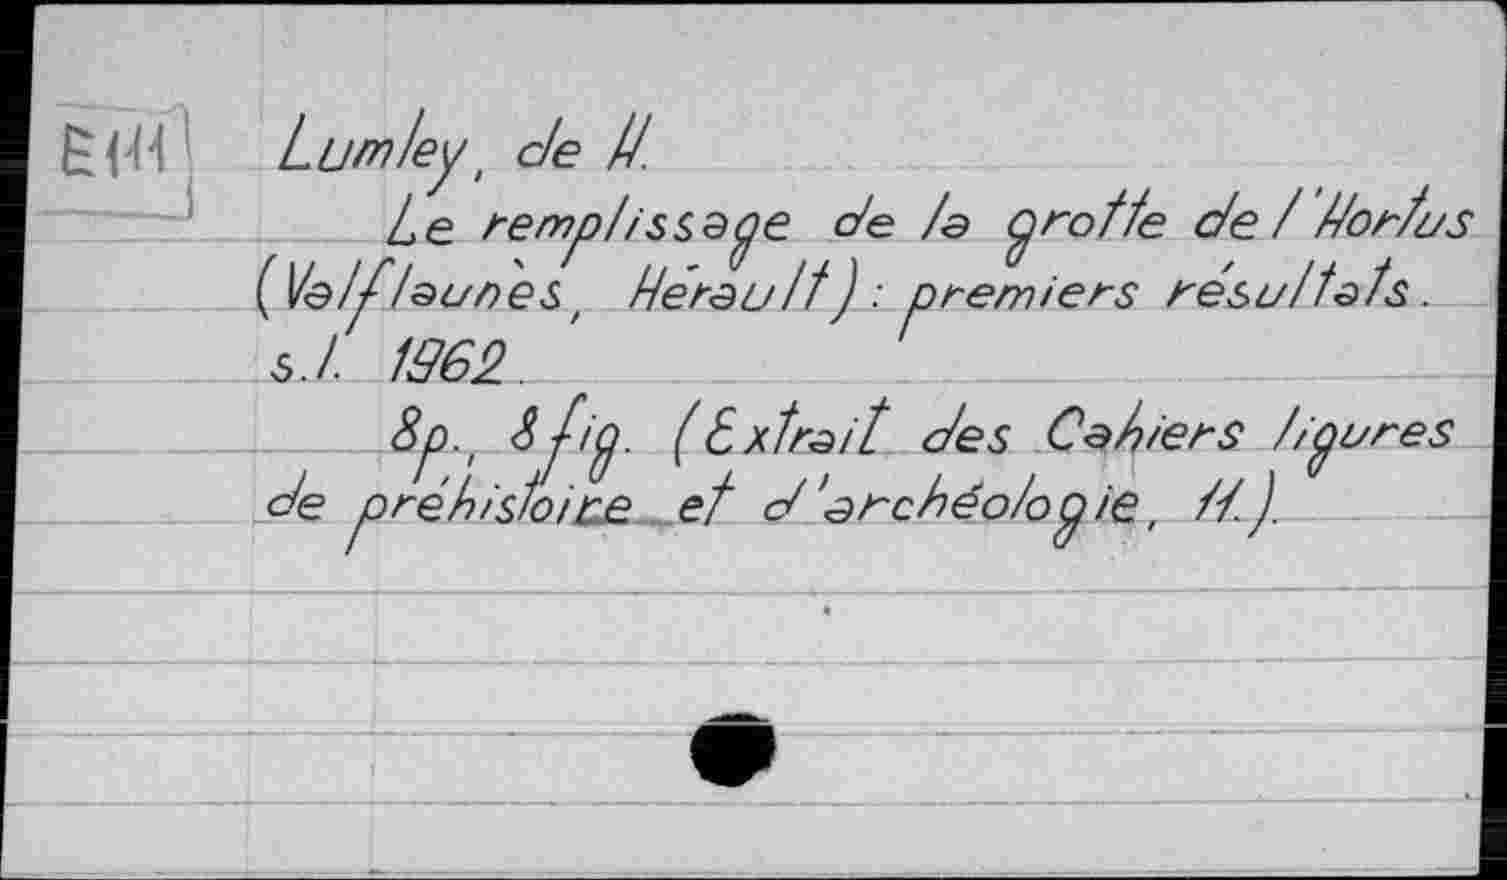 Lumley, de H.
Le remplissage de la grotte de l'Hortus
(Valflaunès, Hérault) : premiers résultats.
s.l. 1962.
8p., 8 fig. (Extrait des Cahiers ligures
de préhistoire et d'archéologie, 11.).